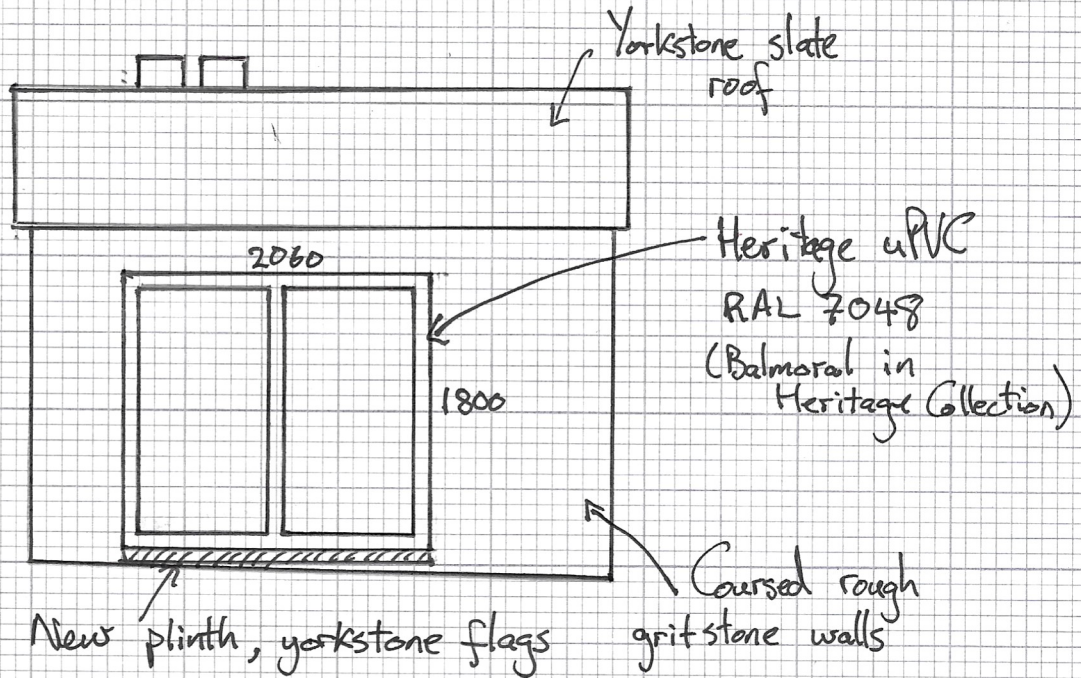 Yorkstone slate
roof
2060
Heritage uPVC
RAL 7048
(Balmoral in
Heritage Collection)
1800
Coursed rough
gritstone walls
New plinth, yorkstone flags